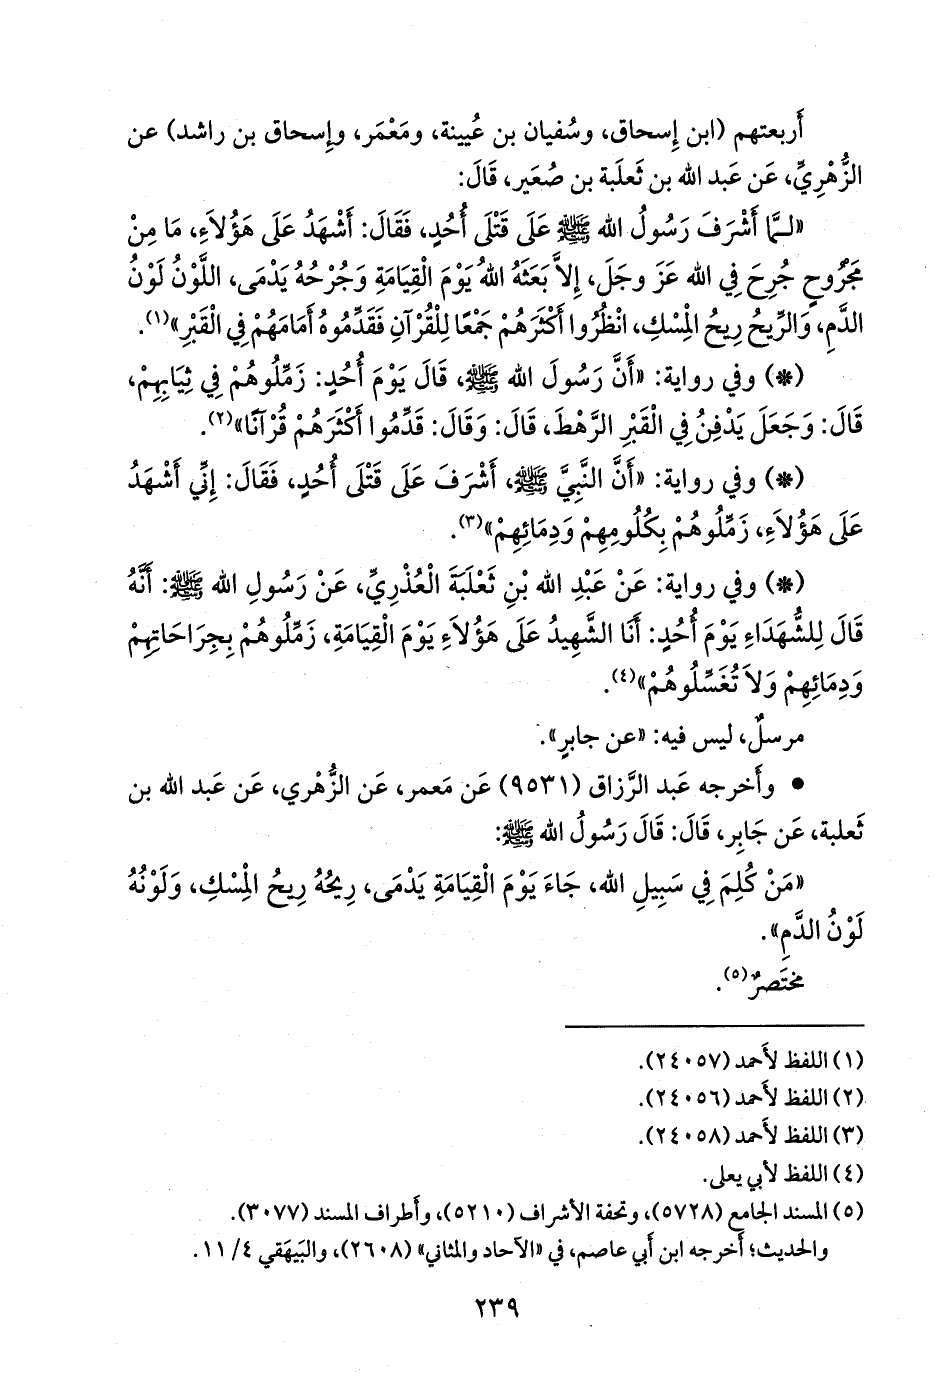 أَربعتهم (ابن إِسحاق، وسُفيان بن عُيينة، ومَعْمَر، وإِسحاق بن راشد) عن
الزُّهْريِّ، عَن عَبد الله بن ثَعلَبة بن صُعَير، قَالَ:
«لـمَّا أَشْرَفَ رَسُولُ الله ﷺ عَلَى قَتْلَى أُحُدٍ، فَقَالَ: أَشْهَدُ عَلَى هَؤُلاَءِ، مَا مِنْ
مَجْرُوحٍ جُرِحَ فِي الله عَزَ وجَلَ، إِلاَّ بَعَثَهُ اللهُ يَوْمَ الْقِيَامَةِ وَجُرْحُهُ يَدْمَى، اللَّوْنُ لَوْنُ
الدَّمِ، وَالرِّيحُ رِيحُ الْمِسْكِ، انْظُرُوا أَكْثَرَهُمْ جَمْعًا لِلْقُرْآنِ فَقَدِّمُوهُ أَمَامَهُمْ فِي الْقَبْرِ»(١).
(*) وفي رواية: «أَنَّ رَسُولَ الله ﷺ، قَالَ يَوْمَ أُحُدٍ: زَمِّلُوهُمْ فِي ثِيَابِهِمْ،
قَالَ: وَجَعَلَ يَدْفِنُ فِي الْقَبْرِ الرَّهْطَ، قَالَ: وَقَالَ: قَدِّمُوا أَكْثَرَهُمْ قُرْآنًا»(٢).
(*) وفي رواية: «أَنَّ النَّبِيَّ ﷺ، أَشْرَفَ عَلَى قَتْلَى أُحُدٍ، فَقَالَ: إِنِّي أَشْهَدُ
عَلَى هَؤُلاَءِ، زَمِّلُوهُمْ بِكُلُومِهِمْ وَدِمَائِهِمْ»(٣).
(*) وفي رواية: عَنْ عَبْدِ الله بْنِ ثَعْلَبَةَ الْعُذْرِيِّ، عَنْ رَسُولِ الله ﷺ: أَنَّهُ
قَالَ لِلشُّهَدَاءِ يَوْمَ أُحُدٍ: أَنَا الشَّهِيدُ عَلَى هَؤُلاَءِ يَوْمَ الْقِيَامَةِ، زَمِّلُوهُمْ بِجِرَاحَاتِهِمْ
وَدِمَائِهِمْ وَلاَ تُغَسِّلُوهُمْ»(٤).
مرسلٌ، ليس فيه: «عن جابرٍ».
• وأَخرجه عَبد الرَّزاق (٩٥٣١) عَن مَعمر، عَن الزُّهْري، عَن عَبد الله بن
ثَعلبة، عَن جَابِر، قَالَ: قَالَ رَسُولُ الله ﷺ:
«مَنْ كُلِمَ فِي سَبِيلِ الله، جَاءَ يَوْمَ الْقِيَامَةِ يَدْمَى، رِيحُهُ رِيحُ الْمِسْكِ، وَلَوْنُهُ
لَوْنُ الدَّمِ».
مختَصرٌ(٥).
(١) اللفظ لأَحمد (٢٤٠٥٧).
(٢) اللفظ لأَحمد (٢٤٠٥٦).
(٣) اللفظ لأَحمد (٢٤٠٥٨).
(٤) اللفظ لأبي يعلى.
(٥) المسند الجامع (٥٧٢٨)، وتحفة الأشراف (٥٢١٠)، وأَطراف المسند (٣٠٧٧).
والحديث؛ أَخرجه ابن أَبي عاصم، في «الآحاد والمثاني» (٢٦٠٨)، والبَيهَقي ٤/ ١١.
٢٣٩